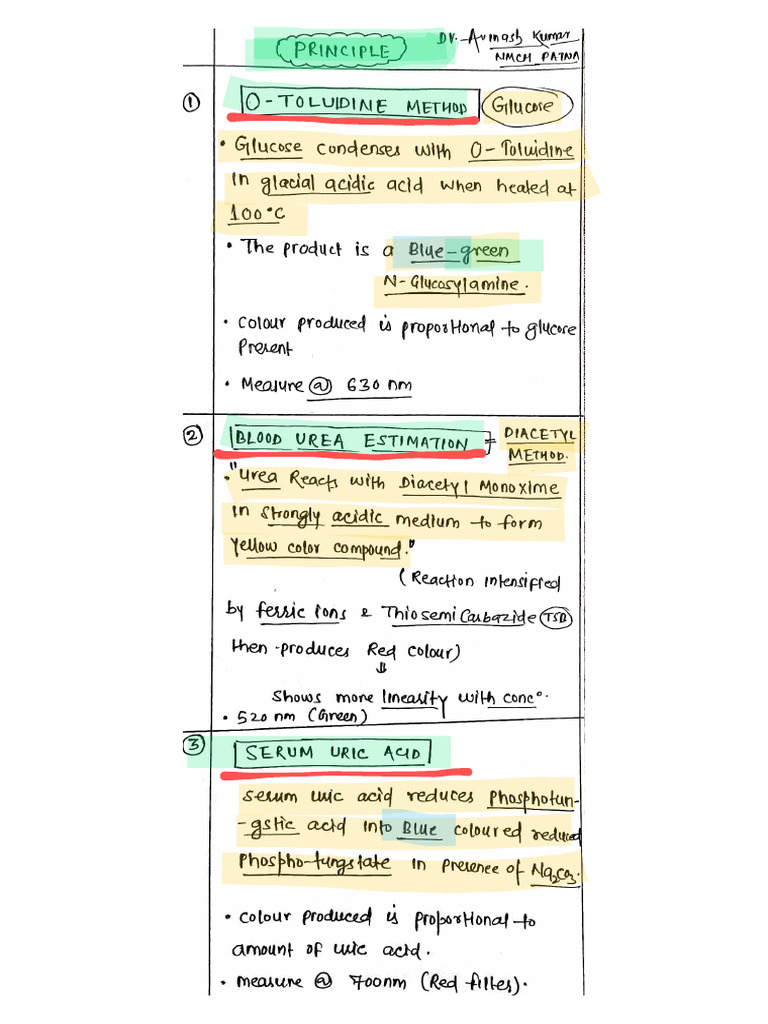 PRINCIPLE
Dr. Avinash Kumar
NMCH PATNA
① O-TOLUIDINE METHOD Glucose
• Glucose condenses with O-Toluidine
in glacial acidic acid when heated at
100°C
• The product is a Blue-green
N-Glucosylamine.
• colour produced is proportional to glucose
Present
• Measure @ 630 nm
② BLOOD UREA ESTIMATION = DIACETYL
METHOD.
• "Urea Reacts with Diacetyl Monoxime
in strongly acidic medium to form
yellow color compound."
(Reaction intensified
by ferric ions & Thiosemicarbazide
then produces Red colour)
⇓
Shows more linearity with concⁿ.
• 520 nm (Green)
③ SERUM URIC ACID
serum uric acid reduces Phosphotun-
-gstic acid into Blue coloured reduced
Phospho-tungstate in presence of Na₂CO₃.
• colour produced is proportional to
amount of uric acid.
• measure @ 700nm (Red filter).